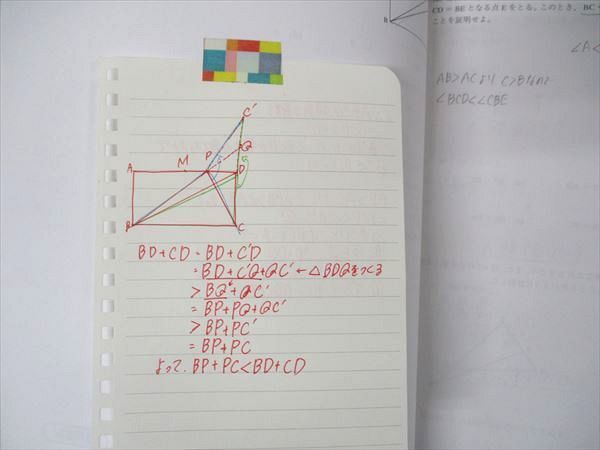 CD=BEとなる点Eをとる。このとき、BC
ことを証明せよ。
B
AB>ACより
∠BCD<∠CBE
C'
Q
A M P D
B C
BD+CD=BD+C'D
=BD+C'Q+QC' ← △BDQをつくる
>BQ+QC'
=BP+PQ+QC'
>BP+PC'
=BP+PC
よって、BP+PC<BD+CD